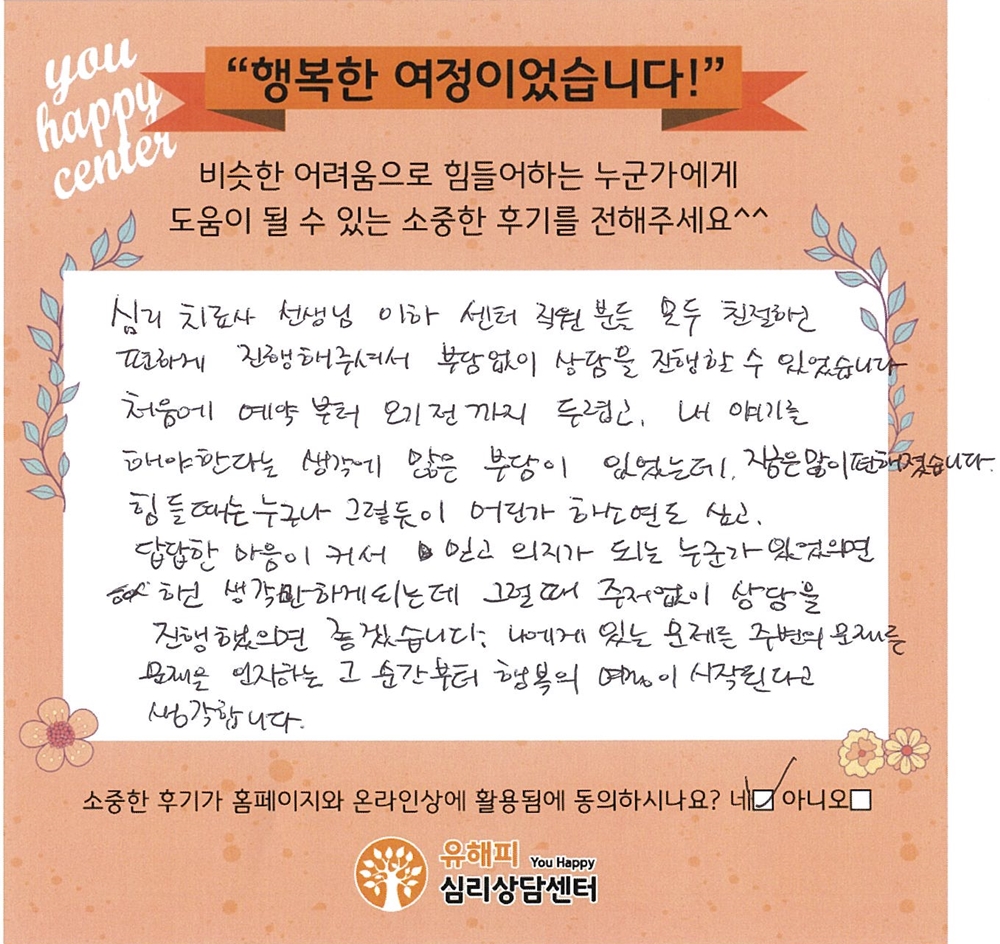 you
happy
center
“행복한 여정이었습니다!”
비슷한 어려움으로 힘들어하는 누군가에게
도움이 될 수 있는 소중한 후기를 전해주세요^^
심리 치료사 선생님 이하 센터 직원 분들 모두 친절하고
편하게 진행해주셔서 부담없이 상담을 진행할 수 있었습니다
처음에 예약부터 오기전까지 두렵고, 내 얘기를
해야한다는 생각에 많은 부담이 있었는데, 지금은 많이 편해졌습니다.
힘들때는 누구나 그렇듯이 어딘가 하소연도 싶고,
답답한 마음이 커서 믿고 의지가 되는 누군가 있었으면
하는 생각만 하게되는데 그럴때 주저없이 상담을
진행했으면 좋겠습니다. 나에게 있는 문제를 주변의 문제를
문제을 인지하는 그 순간부터 행복의 여정이 시작된다고
생각합니다.
소중한 후기가 홈페이지와 온라인상에 활용됨에 동의하시나요? 네 아니오
유해피 You Happy
심리상담센터